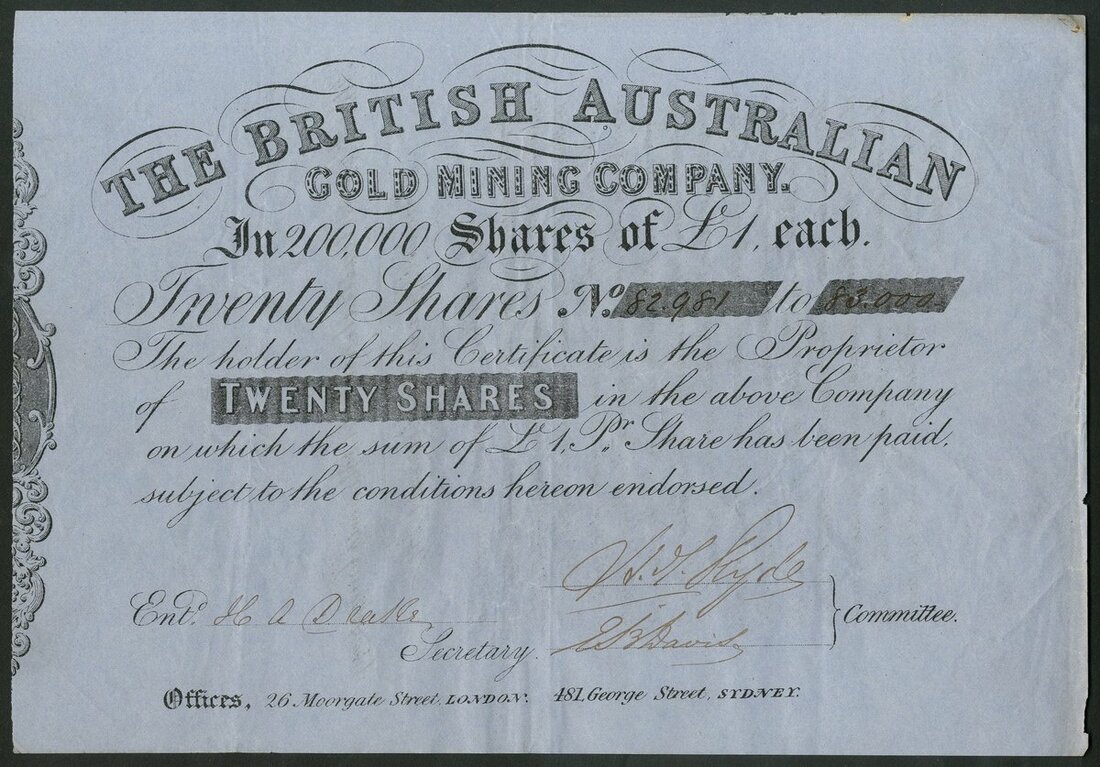 THE BRITISH AUSTRALIAN
GOLD MINING COMPANY.
In 200,000 Shares of £1, each.
Twenty Shares No. 82.981 to 83.000.
The holder of this Certificate is the Proprietor
of TWENTY SHARES in the above Company
on which the sum of £1, Pr. Share has been paid,
subject to the conditions hereon endorsed.
Entd. H A Drake
Secretary.
Committee.
E B Davis
Offices, 26 Moorgate Street, LONDON. 481, George Street, SYDNEY.